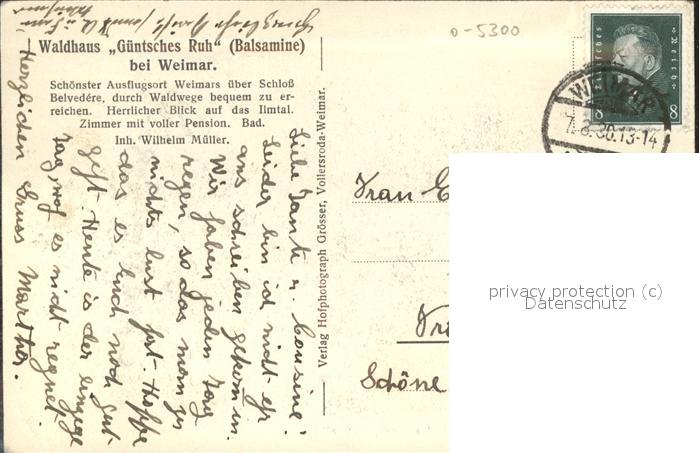 Waldhaus „Güntsches Ruh" (Balsamine)
bei Weimar.
Schönster Ausflugsort Weimars über Schloß
Belvedére, durch Waldwege bequem zu er-
reichen. Herrlicher Blick auf das Ilmtal.
Zimmer mit voller Pension. Bad.
Inh. Wilhelm Müller.
Liebe Tante u. Cousine!
Leider bin ich nicht eh
ans schreiben gekom̄en.
Wir haben jeden Tag
regen, so das man zu
nichts lust hat. Hoffe
das es Euch noch gut
geht. Heute is der einzige
Tag, wo es nicht regnet.
Herzlichen Gruss Martha.
Verlag Hofphotograph Grösser, Vollersroda-Weimar.
0-5300
Deutsches Reich
8 8
WEIMAR
30.13-14
Frau
Schöne
privacy protection (c)
Datenschutz